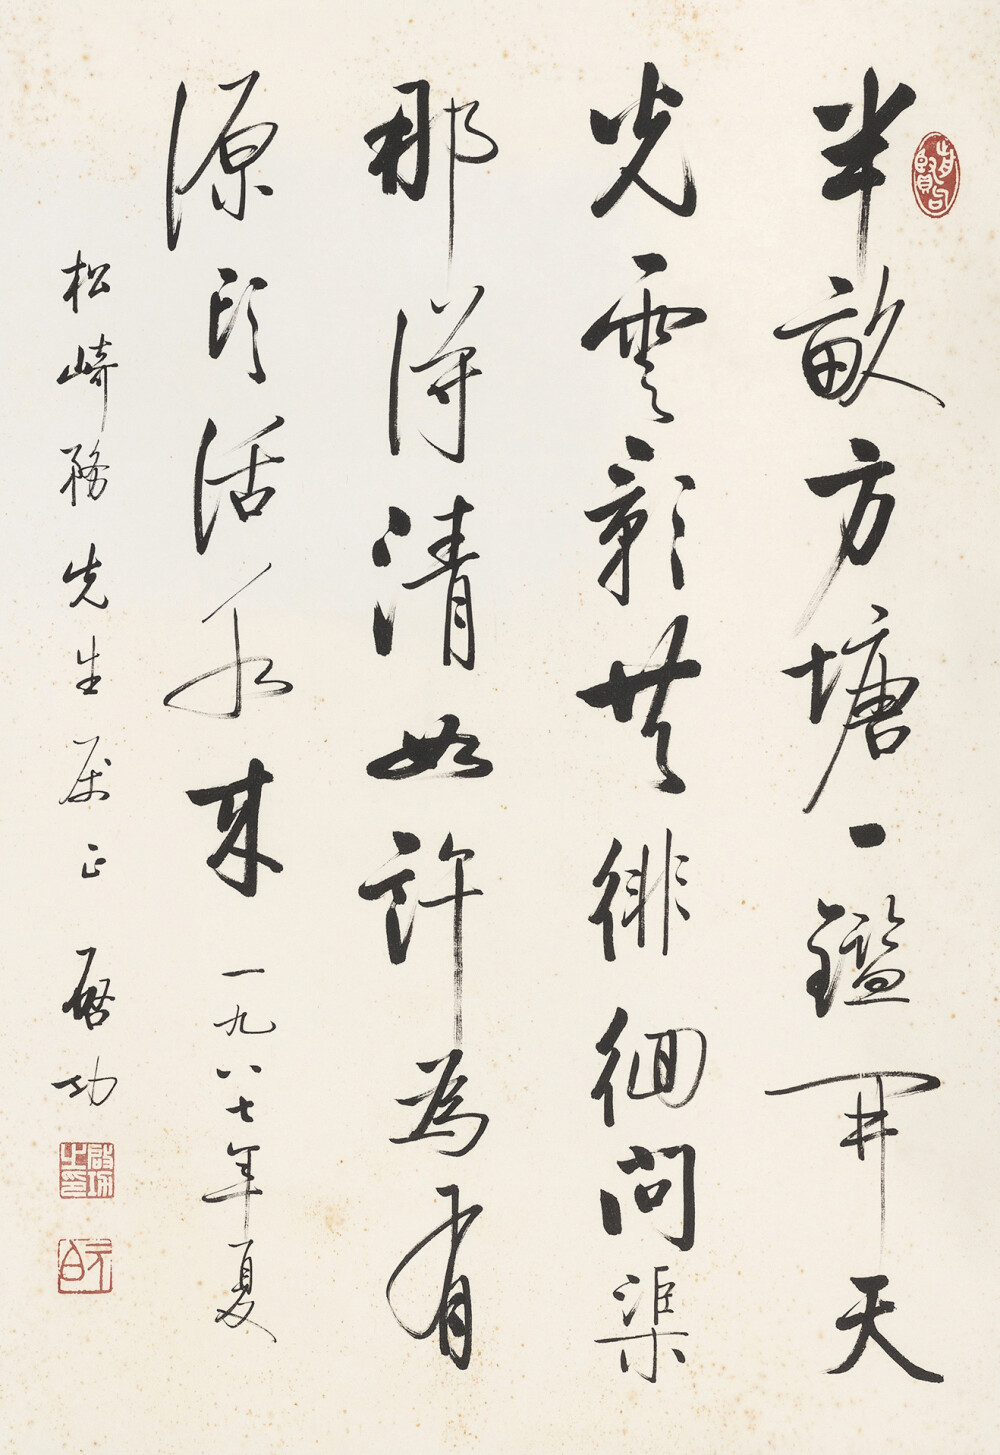 半畝方塘一鑑開天
光雲影共徘徊問渠
那得清如許為有
源頭活水來 一九八七年夏
松崎務先生屬正 啓功
啟功之印
元白